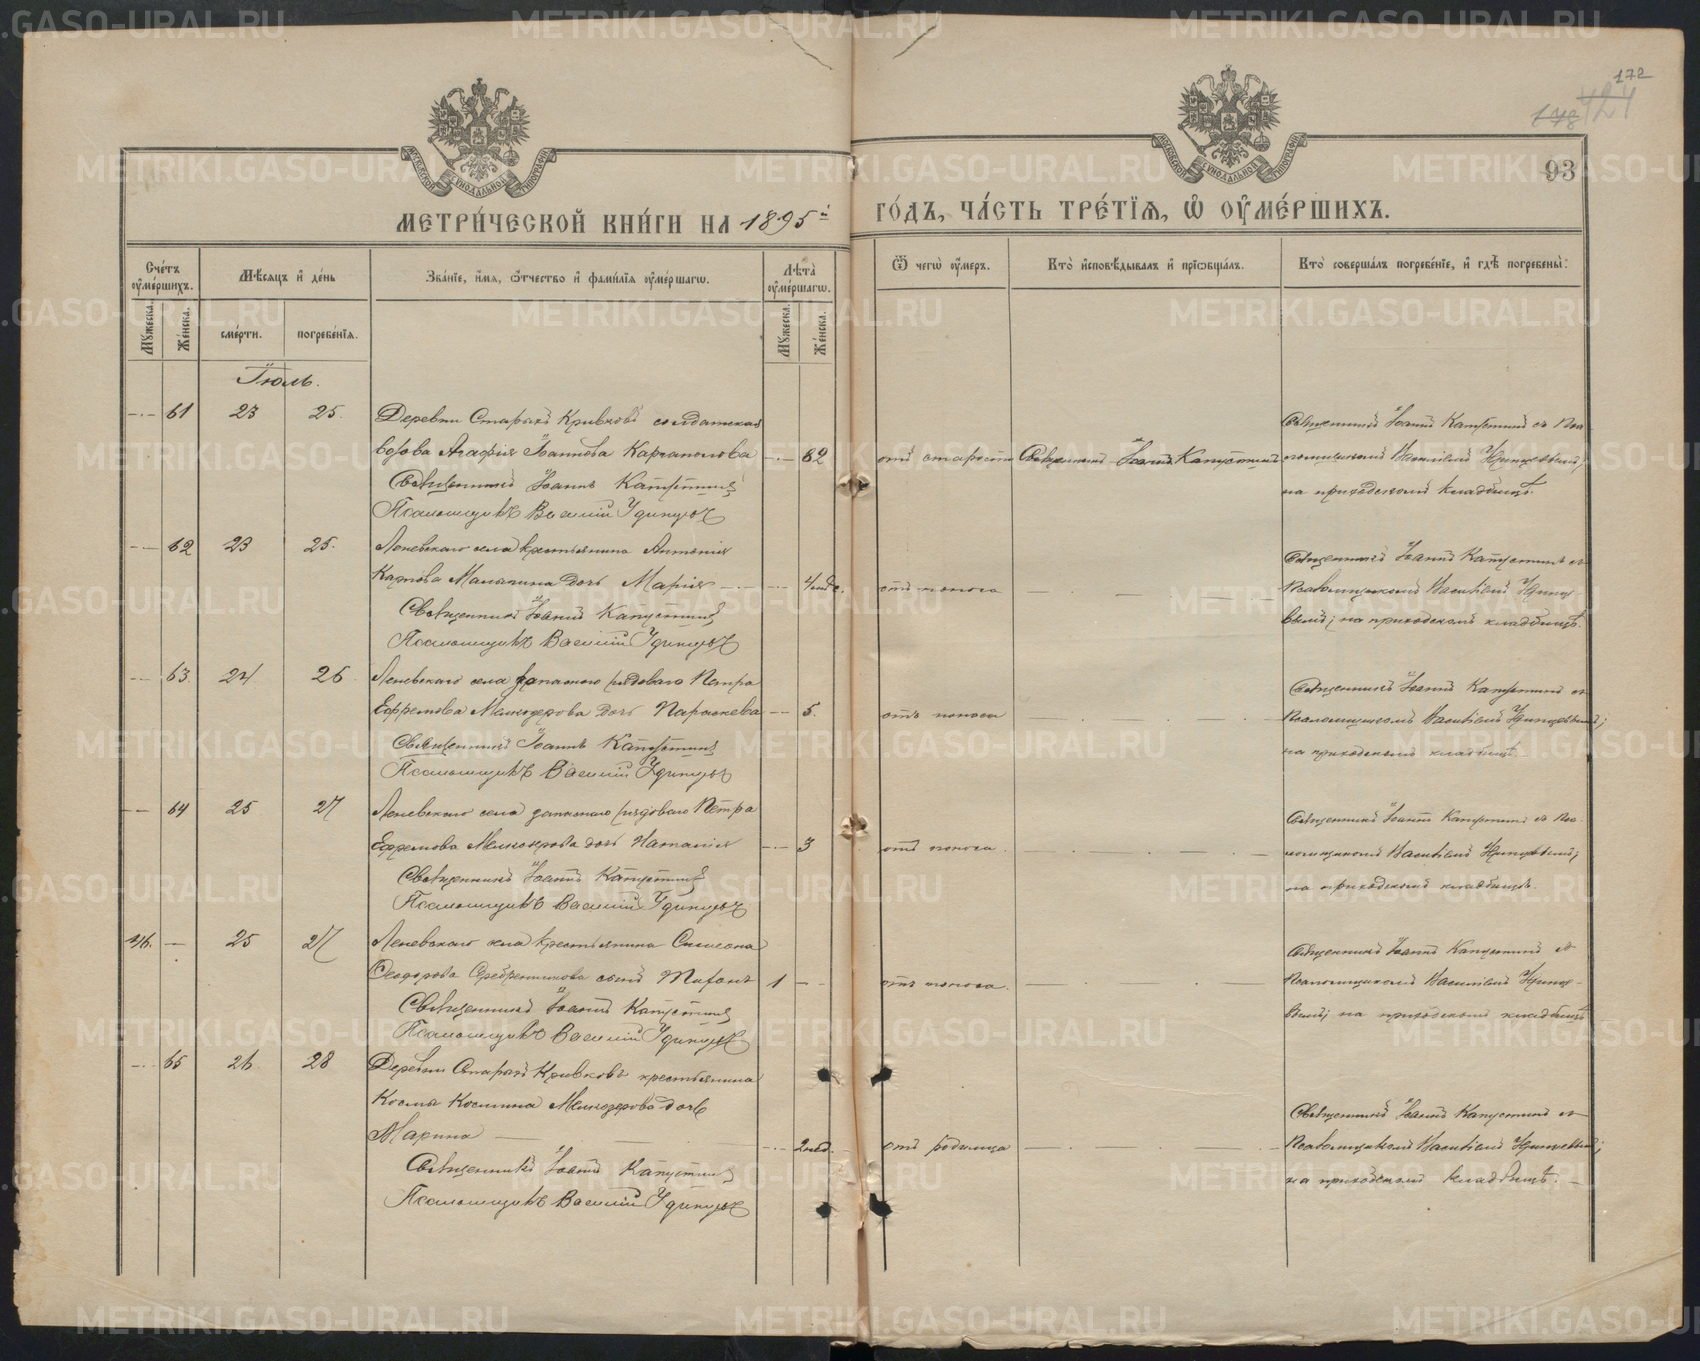 172
93
МЕТРИ́ЧЕСКОЙ КНИ́ГИ НА 1895й ГО́ДЪ, ЧА́СТЬ ТРЕ́ТІѦ, Ѽ ОУ҆МЕ́РШИХЪ.
Сче́тъ оу҆ме́ршихъ.
Мꙋ́жеска.
Же́нска.
Мѣ́сѧцъ и҆ де́нь
сме́рти.
погребе́нїѧ.
Зва́нїе, и҆́мѧ, ѻ҆́тчество и҆ фами́лїѧ оу҆ме́ршагѡ.
Лѣ́та оу҆ме́ршагѡ.
Мꙋ́жеска.
Же́нска.
Ѿ чегѡ̀ оу҆́меръ.
Кто̀ и҆сповѣ́дывалъ и҆ прїѡбща́лъ.
Кто̀ соверша́лъ погребе́нїе, и҆ гдѣ̀ погребены̀:
Іюль.
61 23 25. Деревни Старыхъ Кривковъ солдатская
вдова Агафія Іоаннова Карчаполова 82 отъ старости Священникъ Іоаннъ Капустинъ
Священникъ Іоаннъ Капустинъ
Псаломщикъ Василій Удинцевъ
Священникъ Іоаннъ Капустинъ съ Пса
ломщикомъ Василіемъ Удинцевымъ;
на приходскомъ кладбищѣ.
62 23 25. Леневскаго села крестьянина Антонія
Карпова Малыгина дочь Марія отъ поноса
Священникъ Іоаннъ Капустинъ
Псаломщикъ Василій Удинцевъ
Священникъ Іоаннъ Капустинъ съ
Псаломщикомъ Василіемъ Удинце
вымъ; на приходскомъ кладбищѣ.
63. 24 26 Леневскаго села запаснаго рядоваго Петра
Ефремова Мелкозерова дочь Параскева 5. отъ поноса
Священникъ Іоаннъ Капустинъ
Псаломщикъ Василій Удинцевъ
Священникъ Іоаннъ Капустинъ съ
Псаломщикомъ Василіемъ Удинцевымъ;
на приходскомъ кладбищѣ.
64 25 27 Леневскаго села запаснаго рядоваго Петра
Ефремова Мелкозерова дочь Наталія 3 отъ поноса
Священникъ Іоаннъ Капустинъ
Псаломщикъ Василій Удинцевъ
Священникъ Іоаннъ Капустинъ съ Пса
ломщикомъ Василіемъ Удинцевымъ;
на приходскомъ кладбищѣ.
25 27 Леневскаго села крестьянина Симеона
Ѳеодорова Серебренникова сынъ Тихонъ 1 отъ поноса.
Священникъ Іоаннъ Капустинъ
Псаломщикъ Василій Удинцевъ
Священникъ Іоаннъ Капустинъ съ
Псаломщикомъ Василіемъ Удинце
вымъ; на приходскомъ кладбищѣ
65 26 28 Деревни Старыхъ Кривковъ крестьянина
Космы Космина Мелкозерова дочь
Марина 2 нед. отъ родимца
Священникъ Іоаннъ Капустинъ
Псаломщикъ Василій Удинцевъ
Священникъ Іоаннъ Капустинъ съ
Псаломщикомъ Василіемъ Удинцевымъ;
на приходскомъ кладбищѣ.
METRIKI.GASO-URAL.RU